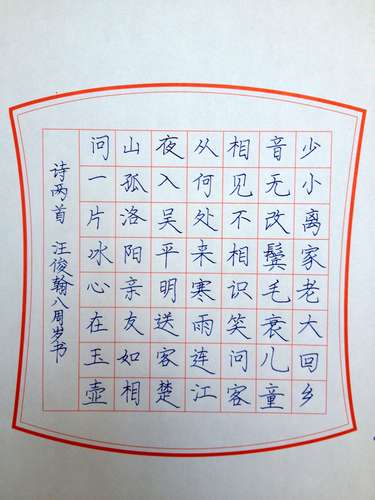 少小离家老大回乡
音无改鬓毛衰儿童
相见不相识笑问客
从何处来寒雨连江
夜入吴平明送客楚
山孤洛阳亲友如相
问一片冰心在玉壶
诗两首 汪俊翰八周岁书